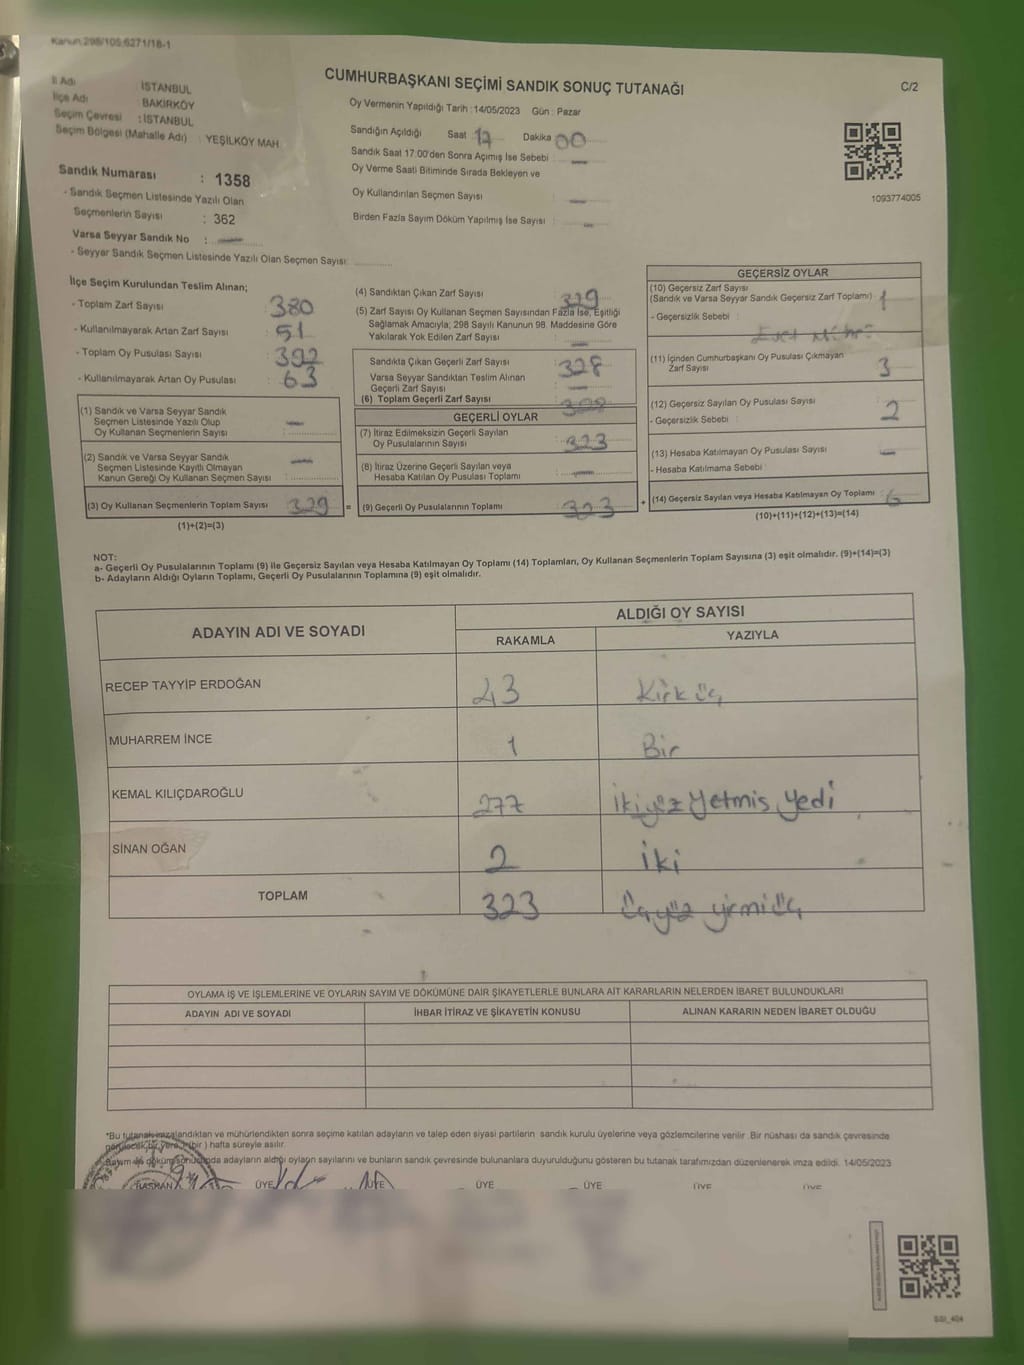 Kanun 298/105,6271/18-1
C/2
CUMHURBAŞKANI SEÇİMİ SANDIK SONUÇ TUTANAĞI
İl Adı : İSTANBUL
İlçe Adı : BAKIRKÖY
Seçim Çevresi : İSTANBUL
Seçim Bölgesi (Mahalle Adı) : YEŞİLKÖY MAH.
Sandık Numarası : 1358
- Sandık Seçmen Listesinde Yazılı Olan
Seçmenlerin Sayısı : 362
Varsa Seyyar Sandık No : —
- Seyyar Sandık Seçmen Listesinde Yazılı Olan Seçmen Sayısı:
Oy Vermenin Yapıldığı Tarih : 14/05/2023 Gün : Pazar
Sandığın Açıldığı Saat 17 Dakika 00
Sandık Saat 17:00'den Sonra Açımış İse Sebebi : —
Oy Verme Saati Bitiminde Sırada Bekleyen ve
Oy Kullandırılan Seçmen Sayısı : —
Birden Fazla Sayım Döküm Yapılmış İse Sayısı : —
1093774005
İlçe Seçim Kurulundan Teslim Alınan;
- Toplam Zarf Sayısı : 380
- Kullanılmayarak Artan Zarf Sayısı : 51
- Toplam Oy Pusulası Sayısı : 392
- Kullanılmayarak Artan Oy Pusulası : 63
(1) Sandık ve Varsa Seyyar Sandık
Seçmen Listesinde Yazılı Olup
Oy Kullanan Seçmenlerin Sayısı : —
(2) Sandık ve Varsa Seyyar Sandık
Seçmen Listesinde Kayıtlı Olmayan
Kanun Gereği Oy Kullanan Seçmen Sayısı : —
(3) Oy Kullanan Seçmenlerin Toplam Sayısı : 329
(1)+(2)=(3)
(4) Sandıktan Çıkan Zarf Sayısı : 329
(5) Zarf Sayısı Oy Kullanan Seçmen Sayısından Fazla İse, Eşitliği
Sağlamak Amacıyla; 298 Sayılı Kanunun 98. Maddesine Göre
Yakılarak Yok Edilen Zarf Sayısı : —
Sandıkta Çıkan Geçerli Zarf Sayısı : 328
Varsa Seyyar Sandıktan Teslim Alınan
Geçerli Zarf Sayısı : —
(6) Toplam Geçerli Zarf Sayısı : 328
=
GEÇERLİ OYLAR
(7) İtiraz Edilmeksizin Geçerli Sayılan
Oy Pusulalarının Sayısı : 323
(8) İtiraz Üzerine Geçerli Sayılan veya
Hesaba Katılan Oy Pusulası Toplamı : —
(9) Geçerli Oy Pusulalarının Toplamı : 323
+
GEÇERSİZ OYLAR
(10) Geçersiz Zarf Sayısı
(Sandık ve Varsa Seyyar Sandık Geçersiz Zarf Toplamı) : 1
- Geçersizlik Sebebi :
(11) İçinden Cumhurbaşkanı Oy Pusulası Çıkmayan
Zarf Sayısı : 3
(12) Geçersiz Sayılan Oy Pusulası Sayısı : 2
- Geçersizlik Sebebi :
(13) Hesaba Katılmayan Oy Pusulası Sayısı : —
- Hesaba Katılmama Sebebi :
(14) Geçersiz Sayılan veya Hesaba Katılmayan Oy Toplamı : 6
(10)+(11)+(12)+(13)=(14)
NOT:
a- Geçerli Oy Pusulalarının Toplamı (9) ile Geçersiz Sayılan veya Hesaba Katılmayan Oy Toplamı (14) Toplamları, Oy Kullanan Seçmenlerin Toplam Sayısına (3) eşit olmalıdır. (9)+(14)=(3)
b- Adayların Aldığı Oyların Toplamı, Geçerli Oy Pusulalarının Toplamına (9) eşit olmalıdır.
ADAYIN ADI VE SOYADI
ALDIĞI OY SAYISI
RAKAMLA YAZIYLA
RECEP TAYYİP ERDOĞAN 43 Kırk üç
MUHARREM İNCE 1 Bir
KEMAL KILIÇDAROĞLU 277 İkiyüz Yetmis Yedi
SİNAN OĞAN 2 İki
TOPLAM 323 Üçyüz yirmi üç
OYLAMA İŞ VE İŞLEMLERİNE VE OYLARIN SAYIM VE DÖKÜMÜNE DAİR ŞİKAYETLERLE BUNLARA AİT KARARLARIN NELERDEN İBARET BULUNDUKLARI
ADAYIN ADI VE SOYADI İHBAR İTİRAZ VE ŞİKAYETİN KONUSU ALINAN KARARIN NEDEN İBARET OLDUĞU
*Bu tutanak imzalandıktan ve mühürlendikten sonra seçime katılan adayların ve talep eden siyasi partilerin sandık kurulu üyelerine veya gözlemcilerine verilir. Bir nüshası da sandık çevresinde
görülecek bir yere 1 (bir) hafta süreyle asılır.
Sayım ve döküm sonucunda adayların aldığı oyların sayılarını ve bunların sandık çevresinde bulunanlara duyurulduğunu gösteren bu tutanak tarafımızdan düzenlenerek imza edildi. 14/05/2023
BAŞKAN ÜYE ÜYE ÜYE ÜYE ÜYE ÜYE